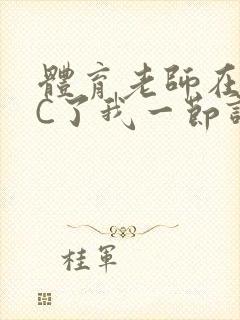 體育老師在
C了我一節
桂軍